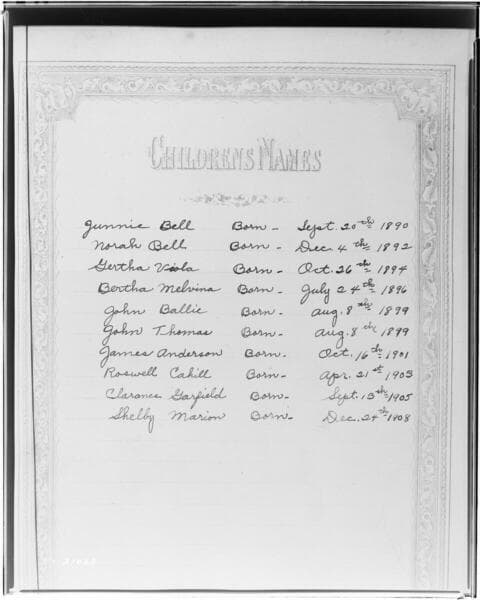 CHILDRENS NAMES
Junnie Bell Born - Sept. 20th 1890
Norah Bell Born - Dec. 4th 1892
Gertha Viola Born - Oct. 26th 1894
Bertha Melvina Born - July 24th 1896
John Ballie Born - Aug. 8th 1899
John Thomas Born - Aug. 8th 1899
James Anderson Born - Oct. 16th 1901
Roswell Cahill Born - Apr. 21st 1903
Clarance Garfield Born - Sept. 13th 1905
Shelby Marion Born - Dec. 24th 1908